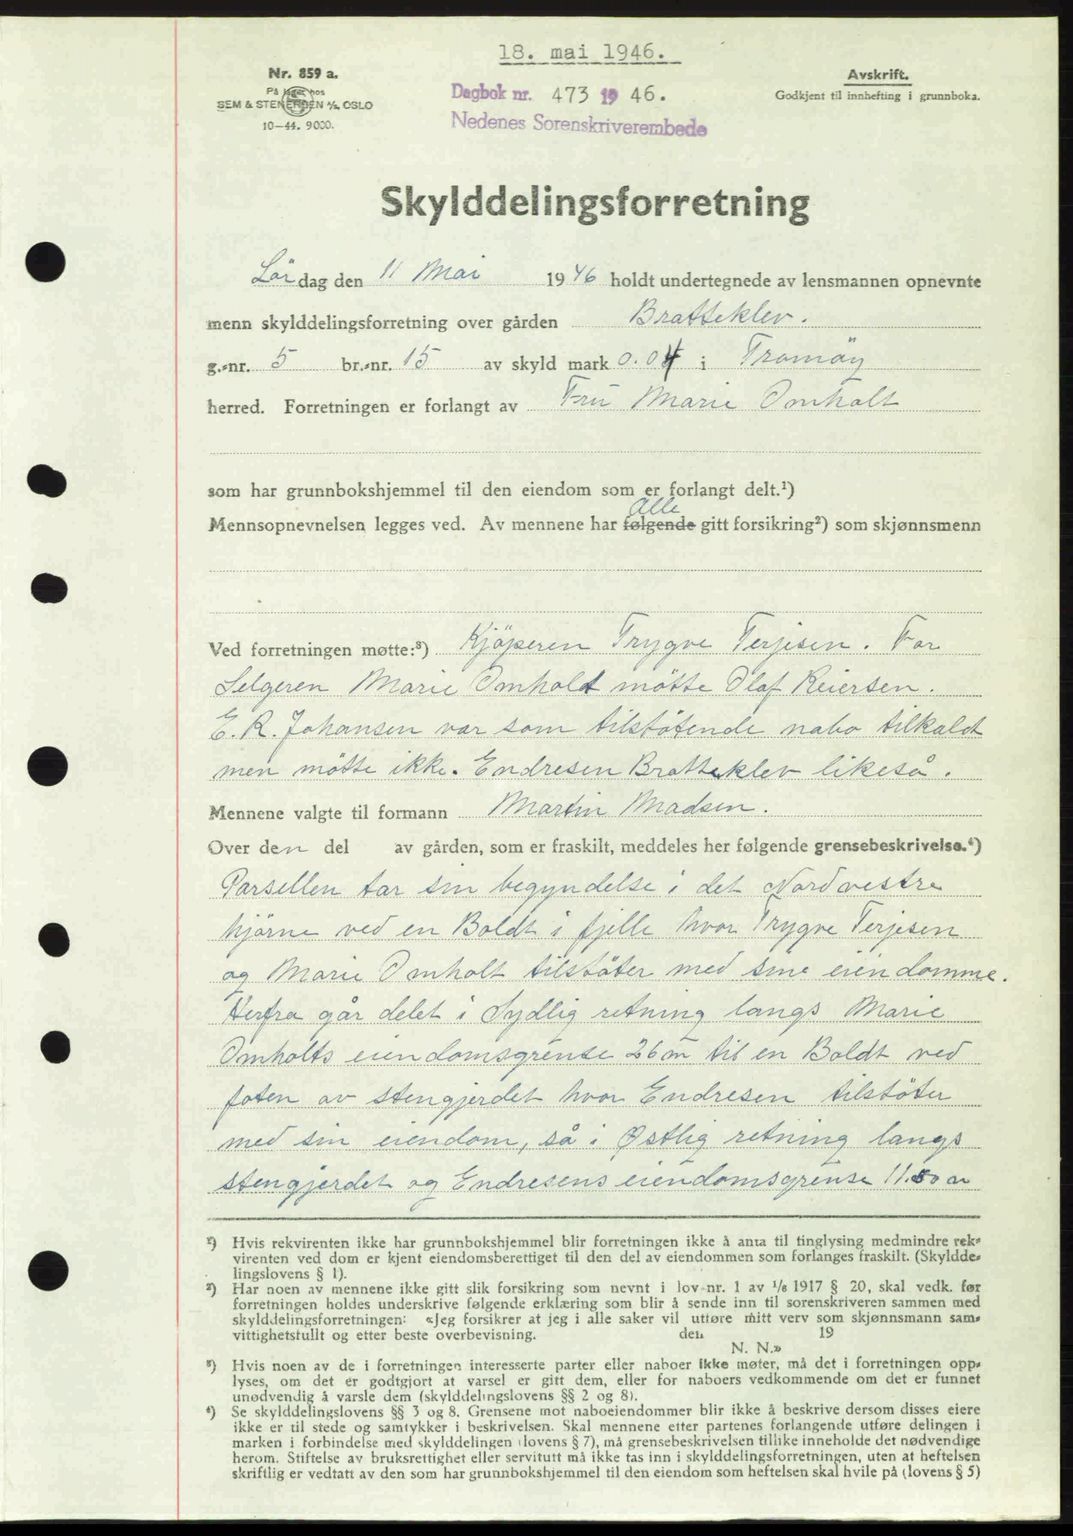 18. mai 1946.
Nr. 859 a.
På lager hos
SEM & STENERSEN A/S, OSLO
10—44. 9000.
Dagbok nr. 473 1946.
Nedenes Sorenskriverembede
Avskrift.
Godkjent til innhefting i grunnboka.
Skylddelingsforretning
Lör dag den 11 Mai 1946 holdt undertegnede av lensmannen opnevnte
menn skylddelingsforretning over gården Bratteklev.
g.-nr. 5 br.-nr. 15 av skyld mark 0.04 i Tromöy
herred. Forretningen er forlangt av Fru Marie Omholt
som har grunnbokshjemmel til den eiendom som er forlangt delt.¹)
Alle
Mennsopnevnelsen legges ved. Av mennene har følgende gitt forsikring²) som skjønnsmenn
Ved forretningen møtte:³) Kjöperen Trygve Terjesen. For
Selgeren Marie Omholt mötte Olaf Reiersen.
E. R. Johansen var som tilstötende nabo tilkaldt
men mötte ikke. Endresen Bratteklev likeså.
Mennene valgte til formann Martin Madsen.
Over den del av gården, som er fraskilt, meddeles her følgende grensebeskrivelse.⁴)
Parsellen tar sin begyndelse i det Nordvestre
hjörne ved en Boldt i fjelle hvor Trygve Terjesen
og Marie Omholt tilstöter med sine eiendomme.
Herfra går delet i Sydlig retning langs Marie
Omholts eiendomsgrense 26 m til en Boldt ved
foten av stengjerdet hvor Endresen tilstöter
med sin eiendom, så i Østlig retning langs
stengjerdet og Endresens eiendomsgrense 11.50 m
¹) Hvis rekvirenten ikke har grunnbokshjemmel blir forretningen ikke å anta til tinglysing medmindre rek-
virenten ved dom er kjent eiendomsberettiget til den del av eiendommen som forlanges fraskilt. (Skyldde-
lingslovens § 1).
²) Har noen av mennene ikke gitt slik forsikring som nevnt i lov nr. 1 av 1/6 1917 § 20, skal vedk. før
forretningen holdes underskrive følgende erklæring som blir å sende inn til sorenskriveren sammen med
skylddelingsforretningen: «Jeg forsikrer at jeg i alle saker vil utføre mitt verv som skjønnsmann sam-
vittighetsfullt og etter beste overbevisning. den 19
N. N.»
³) Hvis noen av de i forretningen interesserte parter eller naboer ikke møter, må det i forretningen opp-
lyses, om det er godtgjort at varsel er gitt dem, eller for naboers vedkommende om det er funnet
unødvendig å varsle dem (skylddelingslovens §§ 2 og 8).
⁴) Se skylddelingslovens §§ 3 og 8. Grensene mot naboeiendommer blir ikke å beskrive dersom disses eiere
ikke er til stede og samtykker i beskrivelsen. Skal mennene etter partenes forlangende utføre delingen i
marken i forbindelse med skylddelingen (lovens § 7), må grensebeskrivelsen tillike inneholde det nødvendige
herom. Stiftelse av bruksrettighet eller servitutt må ikke tas inn i skylddelingsforretningen, uten at heftelsen
skriftlig er vedtatt av den som har grunnbokshjemmel til den eiendom som heftelsen skal hvile på (lovens § 5)